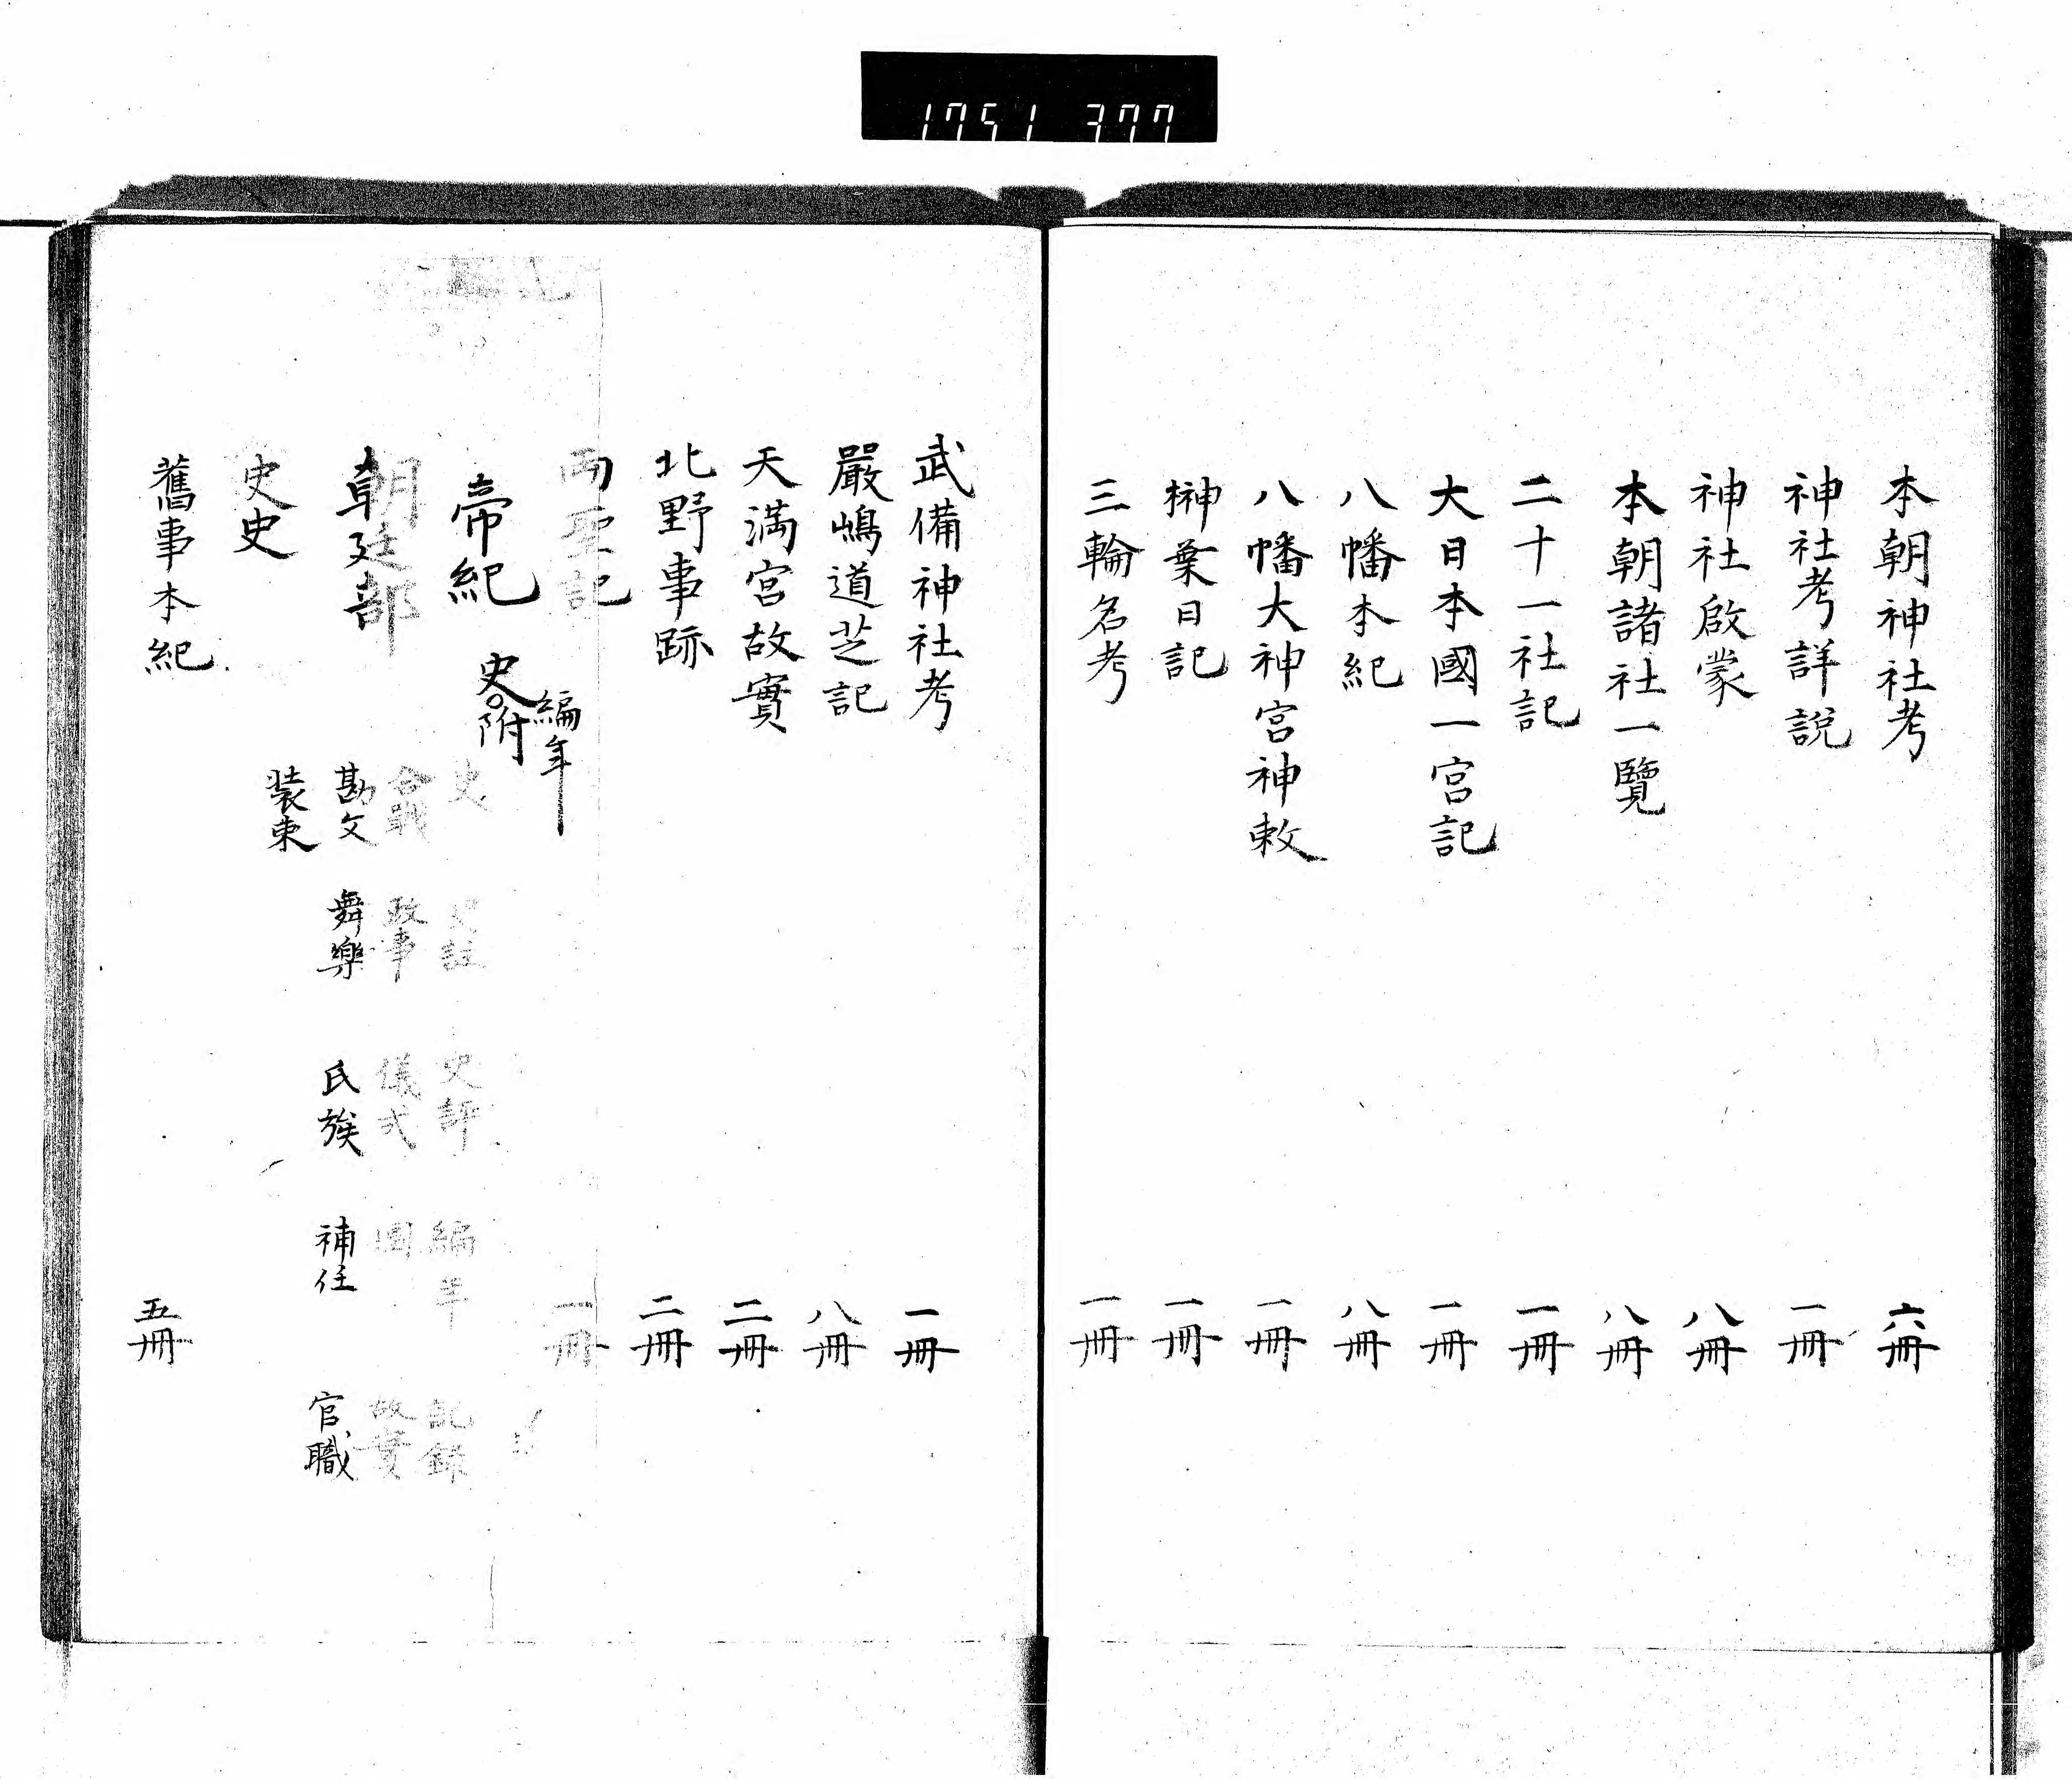 1751 377
本朝神社考 六冊
神社考詳説 一冊
神社啟蒙 八冊
本朝諸社一覽 八冊
二十一社記 一冊
大日本國一宮記 一冊
八幡本紀 八冊
八幡大神宮神敕 一冊
榊葉日記 一冊
三輪名考 一冊
武備神社考 一冊
嚴嶋道芝記 八冊
天満宮故實 二冊
北野事跡 二冊
両聖記 一冊
帝紀
編年
史附
朝廷部
史 史註 史評 編年 記録
合戦 政事 儀式 圖 故實
勘文 舞樂 氏族 補任 官職
装束
史史
舊事本紀 五冊